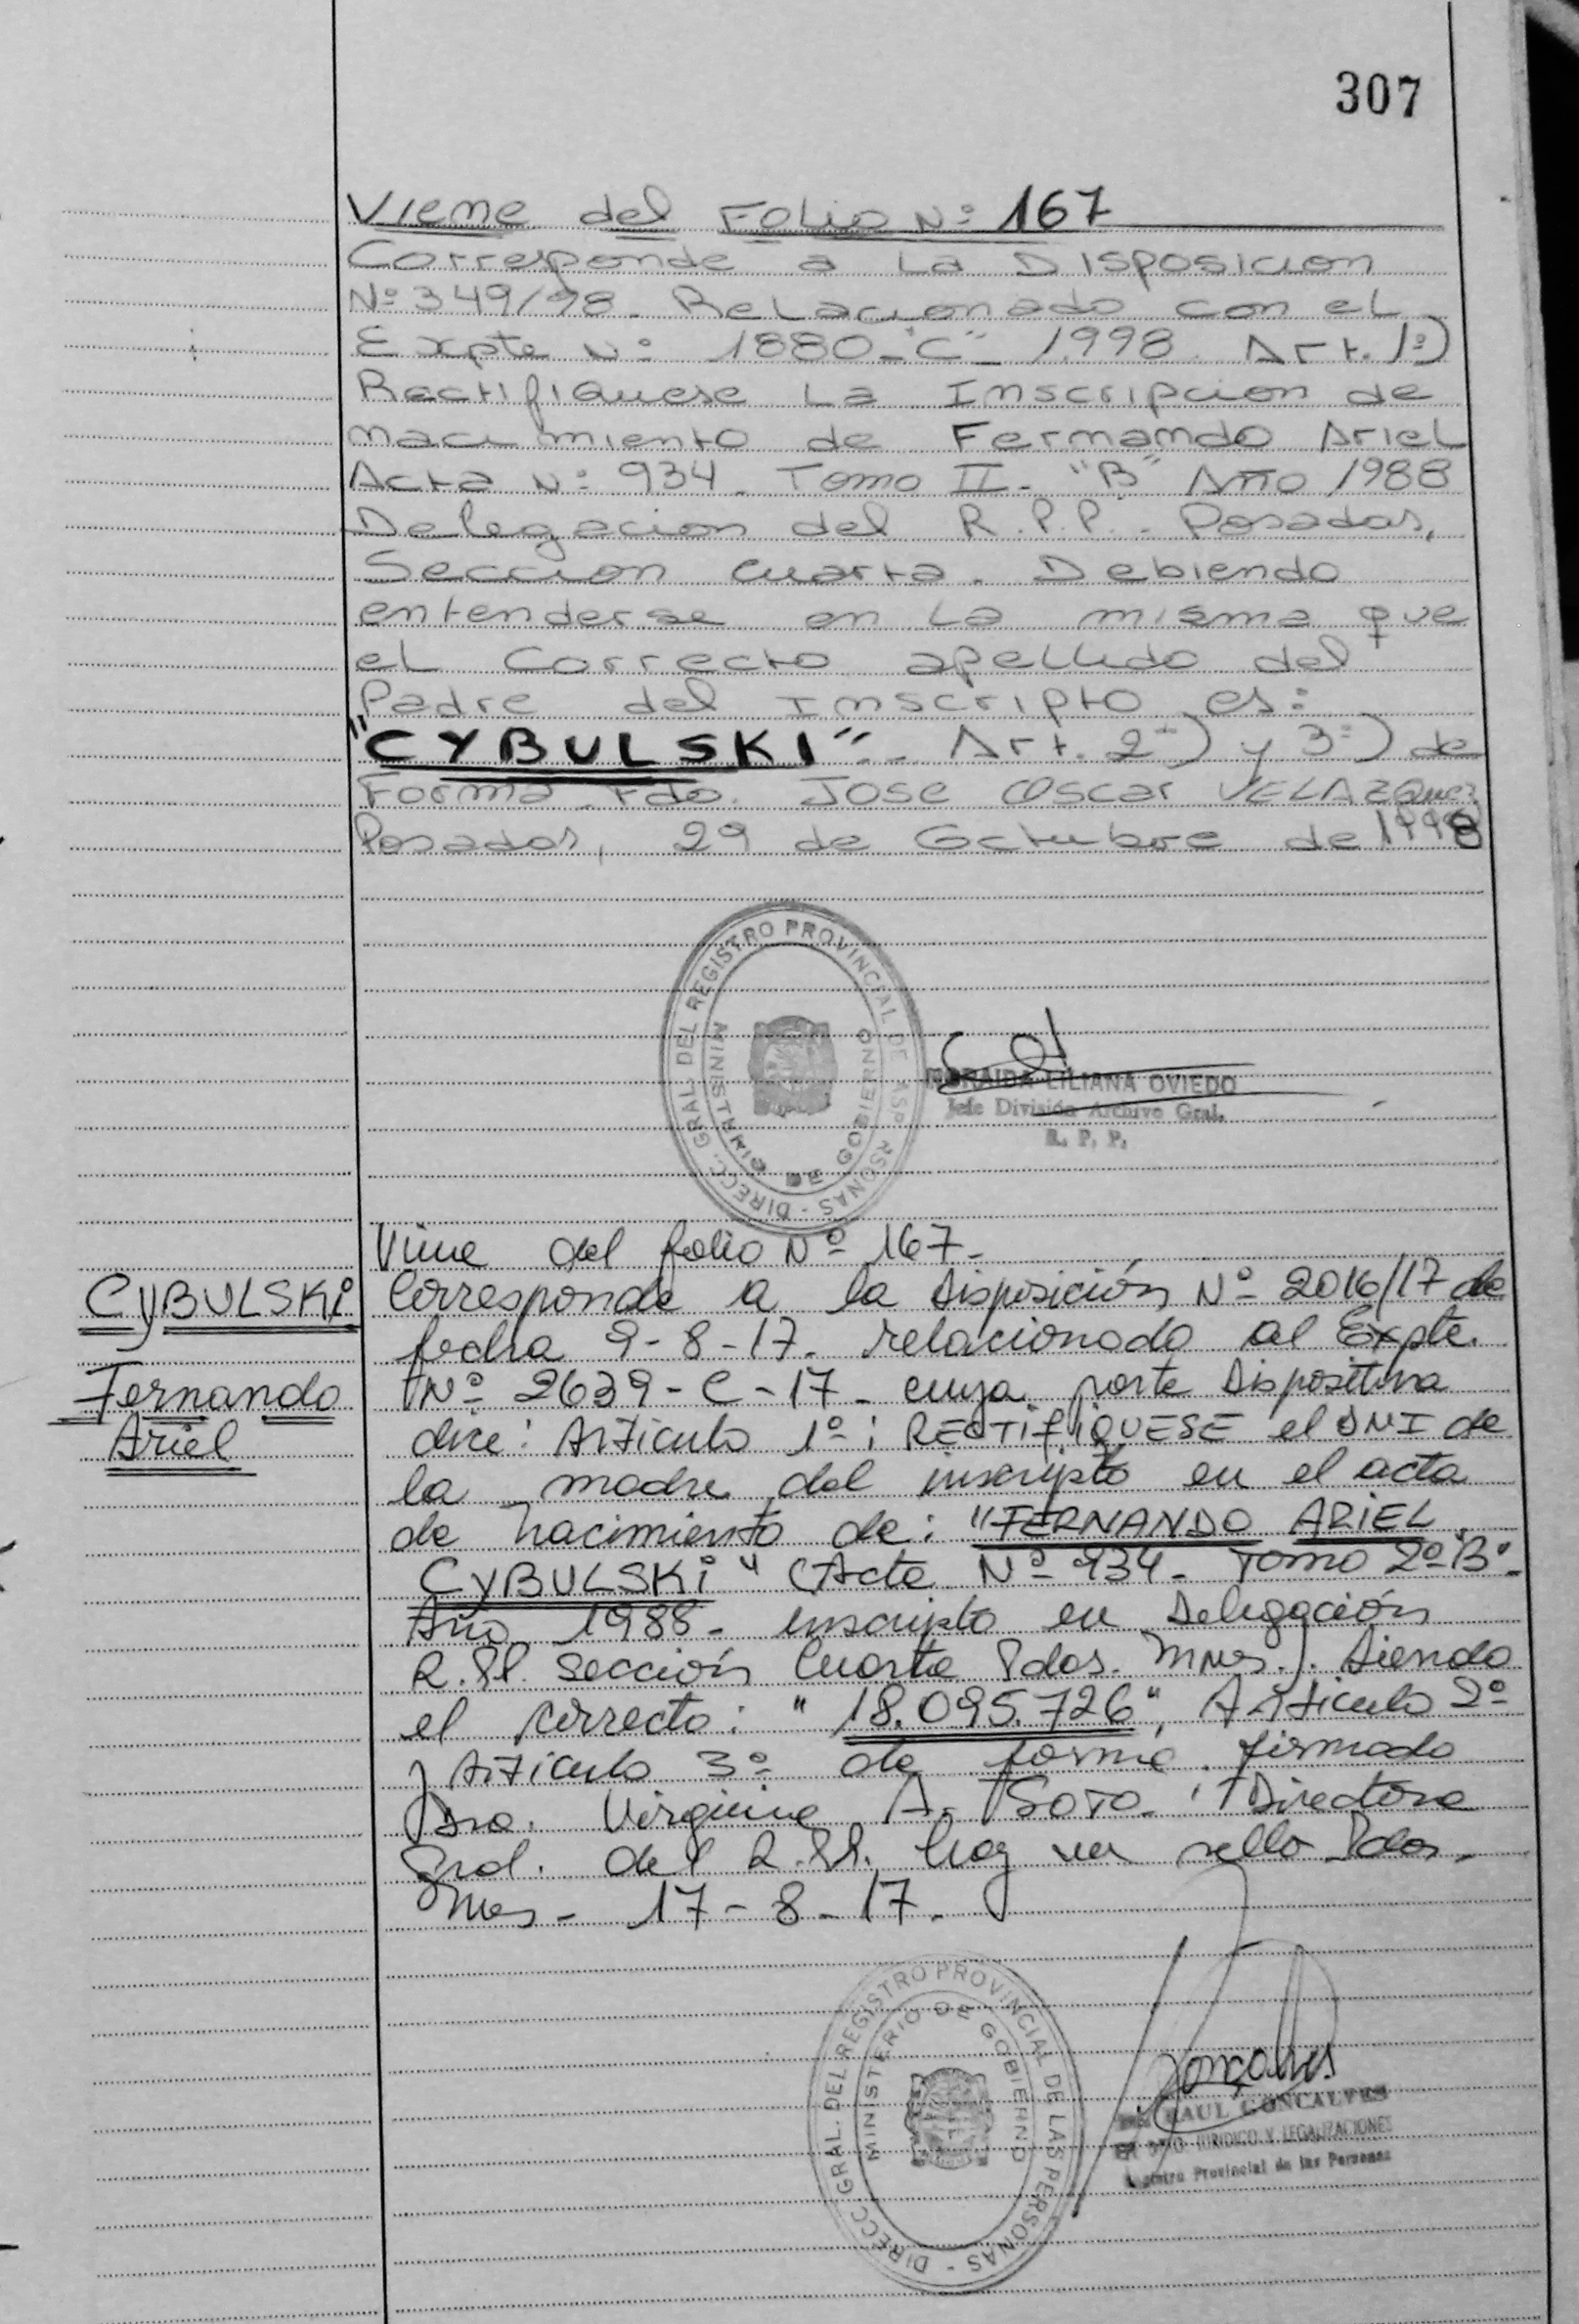 307
Viene del Folio Nº 167
Corresponde a La Disposicion
Nº 349/98. Relacionado con el
Expte Nº 1880-"C"- 1.998. Art. 1º)
Rectifiquese La Inscripcion de
nacimiento de Fernando Ariel
Acta Nº 934. Tomo II- "B" Año 1988
Delegacion del R.P.P. - Posadas,
Seccion cuarta. Debiendo
entenderse en La misma que
el Correcto apellido del
Padre del Inscripto es:
"CYBULSKI".- Art. 2º) y 3º) de
Forma. Fdo. Jose Oscar VELAZQUEZ
Posadas, 29 de Octubre de 1998
DIRECC. GRAL. DEL REGISTRO PROVINCIAL DE RSONAS -
MINISTERIO DE GOBIERNO
LILIANA OVIEDO
Jefe División Archivo Gral.
R. P. P.
Viene del folio Nº 167-
CYBULSKi
Fernando
Ariel
Corresponde a la disposición Nº 2016/17 de
fecha 9-8-17. relacionado al Expte.
Nº 2639-C-17- cuya parte dispositiva
dice: Artículo 1º: RECTIFIQUESE el DNI de
la madre del inscripto en el acta
de nacimiento de: "FERNANDO ARIEL
CYBULSKi" (Acta Nº 934- Tomo 2º B"-
Año 1988- inscripto en Delegación
R.PP. Sección Cuarta Pdas. Mnes.). Siendo
el correcto: "18.095.726", Artículo 2º
y Artículo 3º de forma. firmado
Dra. Virginia A. Soto. Directora
Gral. del R.PP. hay un sello Pdas,
Mnes- 17-8-17.
DIRECC. GRAL. DEL REGISTRO PROVINCIAL DE LAS PERSONAS -
MINISTERIO DE GOBIERNO
RAUL GONCALVES
JURIDICO Y LEGALIZACIONES
Registro Provincial de las Personas